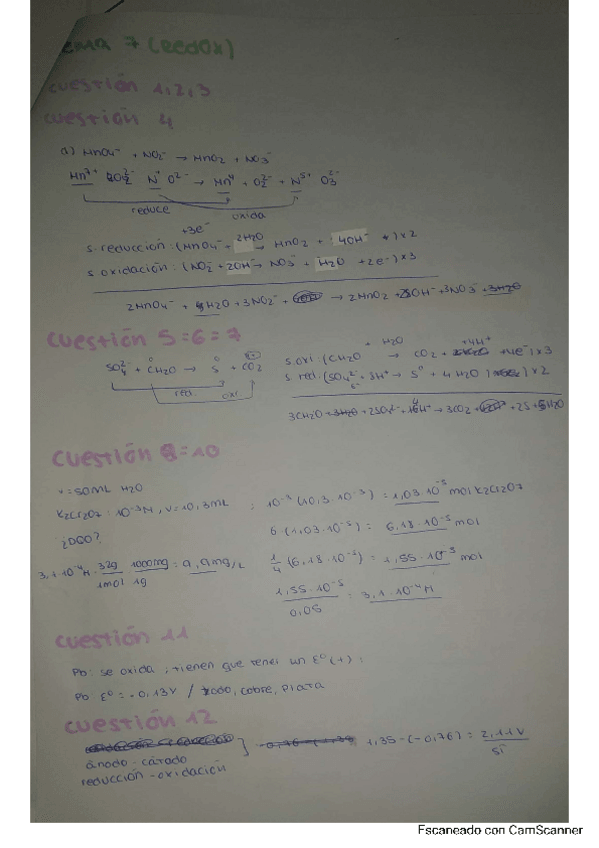 ema 7 (Redox)
cuestión 1,2,3
cuestión 4
a) MnO4⁻ + NO2⁻ → MnO2 + NO3⁻
Mn⁷⁺ O²⁻ N O²⁻ → Mn⁴ + O2²⁻ + N⁵⁺ O3
reduce oxida
+3e⁻
s. reducción: (MnO4⁻ + 2H2O → MnO2 + 4OH⁻ ) x2
s. oxidación: (NO2⁻ + 2OH⁻ → NO3⁻ + H2O + 2e⁻) x3
2MnO4⁻ + H2O + 3NO2⁻ + → 2MnO2 + 2OH⁻ + 3NO3⁻
cuestión 5=6=7
SO4²⁻ + CH2O → S + CO2
red. oxi
s.oxi: (CH2O + H2O → CO2 + 4H⁺ + 4e⁻) x3
s. red: (SO4²⁻ + 8H⁺ → S⁰ + 4H2O) x2
3CH2O + 2SO4²⁻ + 4H⁺ → 3CO2 + 2S + 5H2O
cuestión 8=10
v=50mL H2O
K2Cr2O7: 10⁻³M, v=10,3mL
¿DQO?
3,1·10⁻⁴M · 32g/1mol · 1000mg/1g = 9,9mg/L
10⁻³ (10,3·10⁻³) = 1,03·10⁻⁵ mol K2Cr2O7
6·(1,03·10⁻⁵) = 6,18·10⁻⁵ mol
1/4 (6,18·10⁻⁵) = 1,55·10⁻⁵ mol
1,55·10⁻⁵/0,05 = 3,1·10⁻⁴ M
cuestión 11
Pb: se oxida; tienen que tener un E⁰ (+):
Pb: E⁰ = -0,13V / Yodo, cobre, Plata
cuestión 12
ánodo - cátodo
reducción - oxidación
1,35 - (-0,76) = 2,11V
sí
Escaneado con CamScanner